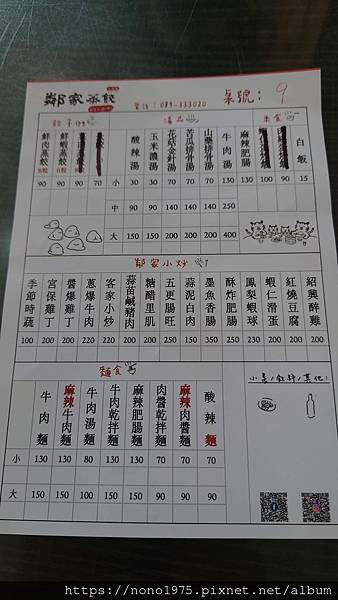 鄰家蒸餃
電話：089-333020
桌號： 9
餃子付
湯品
米食
鮮肉蒸餃 8粒 90
鮮蝦蒸餃 6粒 90
90
70
小 中 大
酸辣湯 30 90 150
玉米濃湯 30 90 150
花菇金針湯 70 140 200
苦瓜排骨湯 70 140 200
山藥排骨湯 70 140 200
牛肉湯 130 250 400
麻辣肥腸 130
90
90
白飯 15
鄰家小炒
季節時蔬 100
宮保雞丁 200
醬爆雞丁 200
蔥爆牛肉 200
客家小炒 200
蒜苗鹹豬肉 200
糖醋里肌 200
五更腸旺 250
蒜泥白肉 150
墨魚香腸 350
酥炸肥腸 250
鳳梨蝦球 230
蝦仁滑蛋 200
紅燒豆腐 200
紹興醉雞 200
麵食
小 大
牛肉麵 130 150
麻辣牛肉麵 130 150
牛肉湯麵 80 100
牛肉乾拌麵 130 150
麻辣肥腸麵 130 150
肉醬乾拌麵 70 90
麻辣肉醬麵 70 90
酸辣麵 70 90
小菜/飲料/其他:
https://nono1975.pixnet.net/album